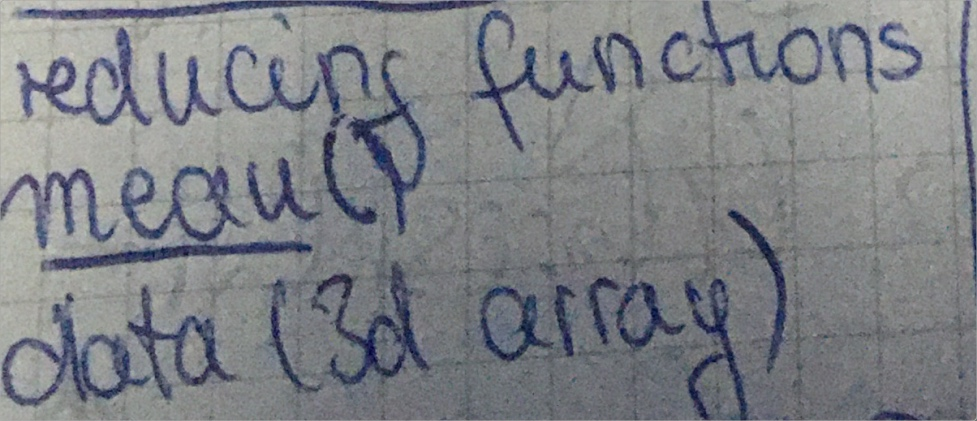 reducing functions
mean()
data (3d array)